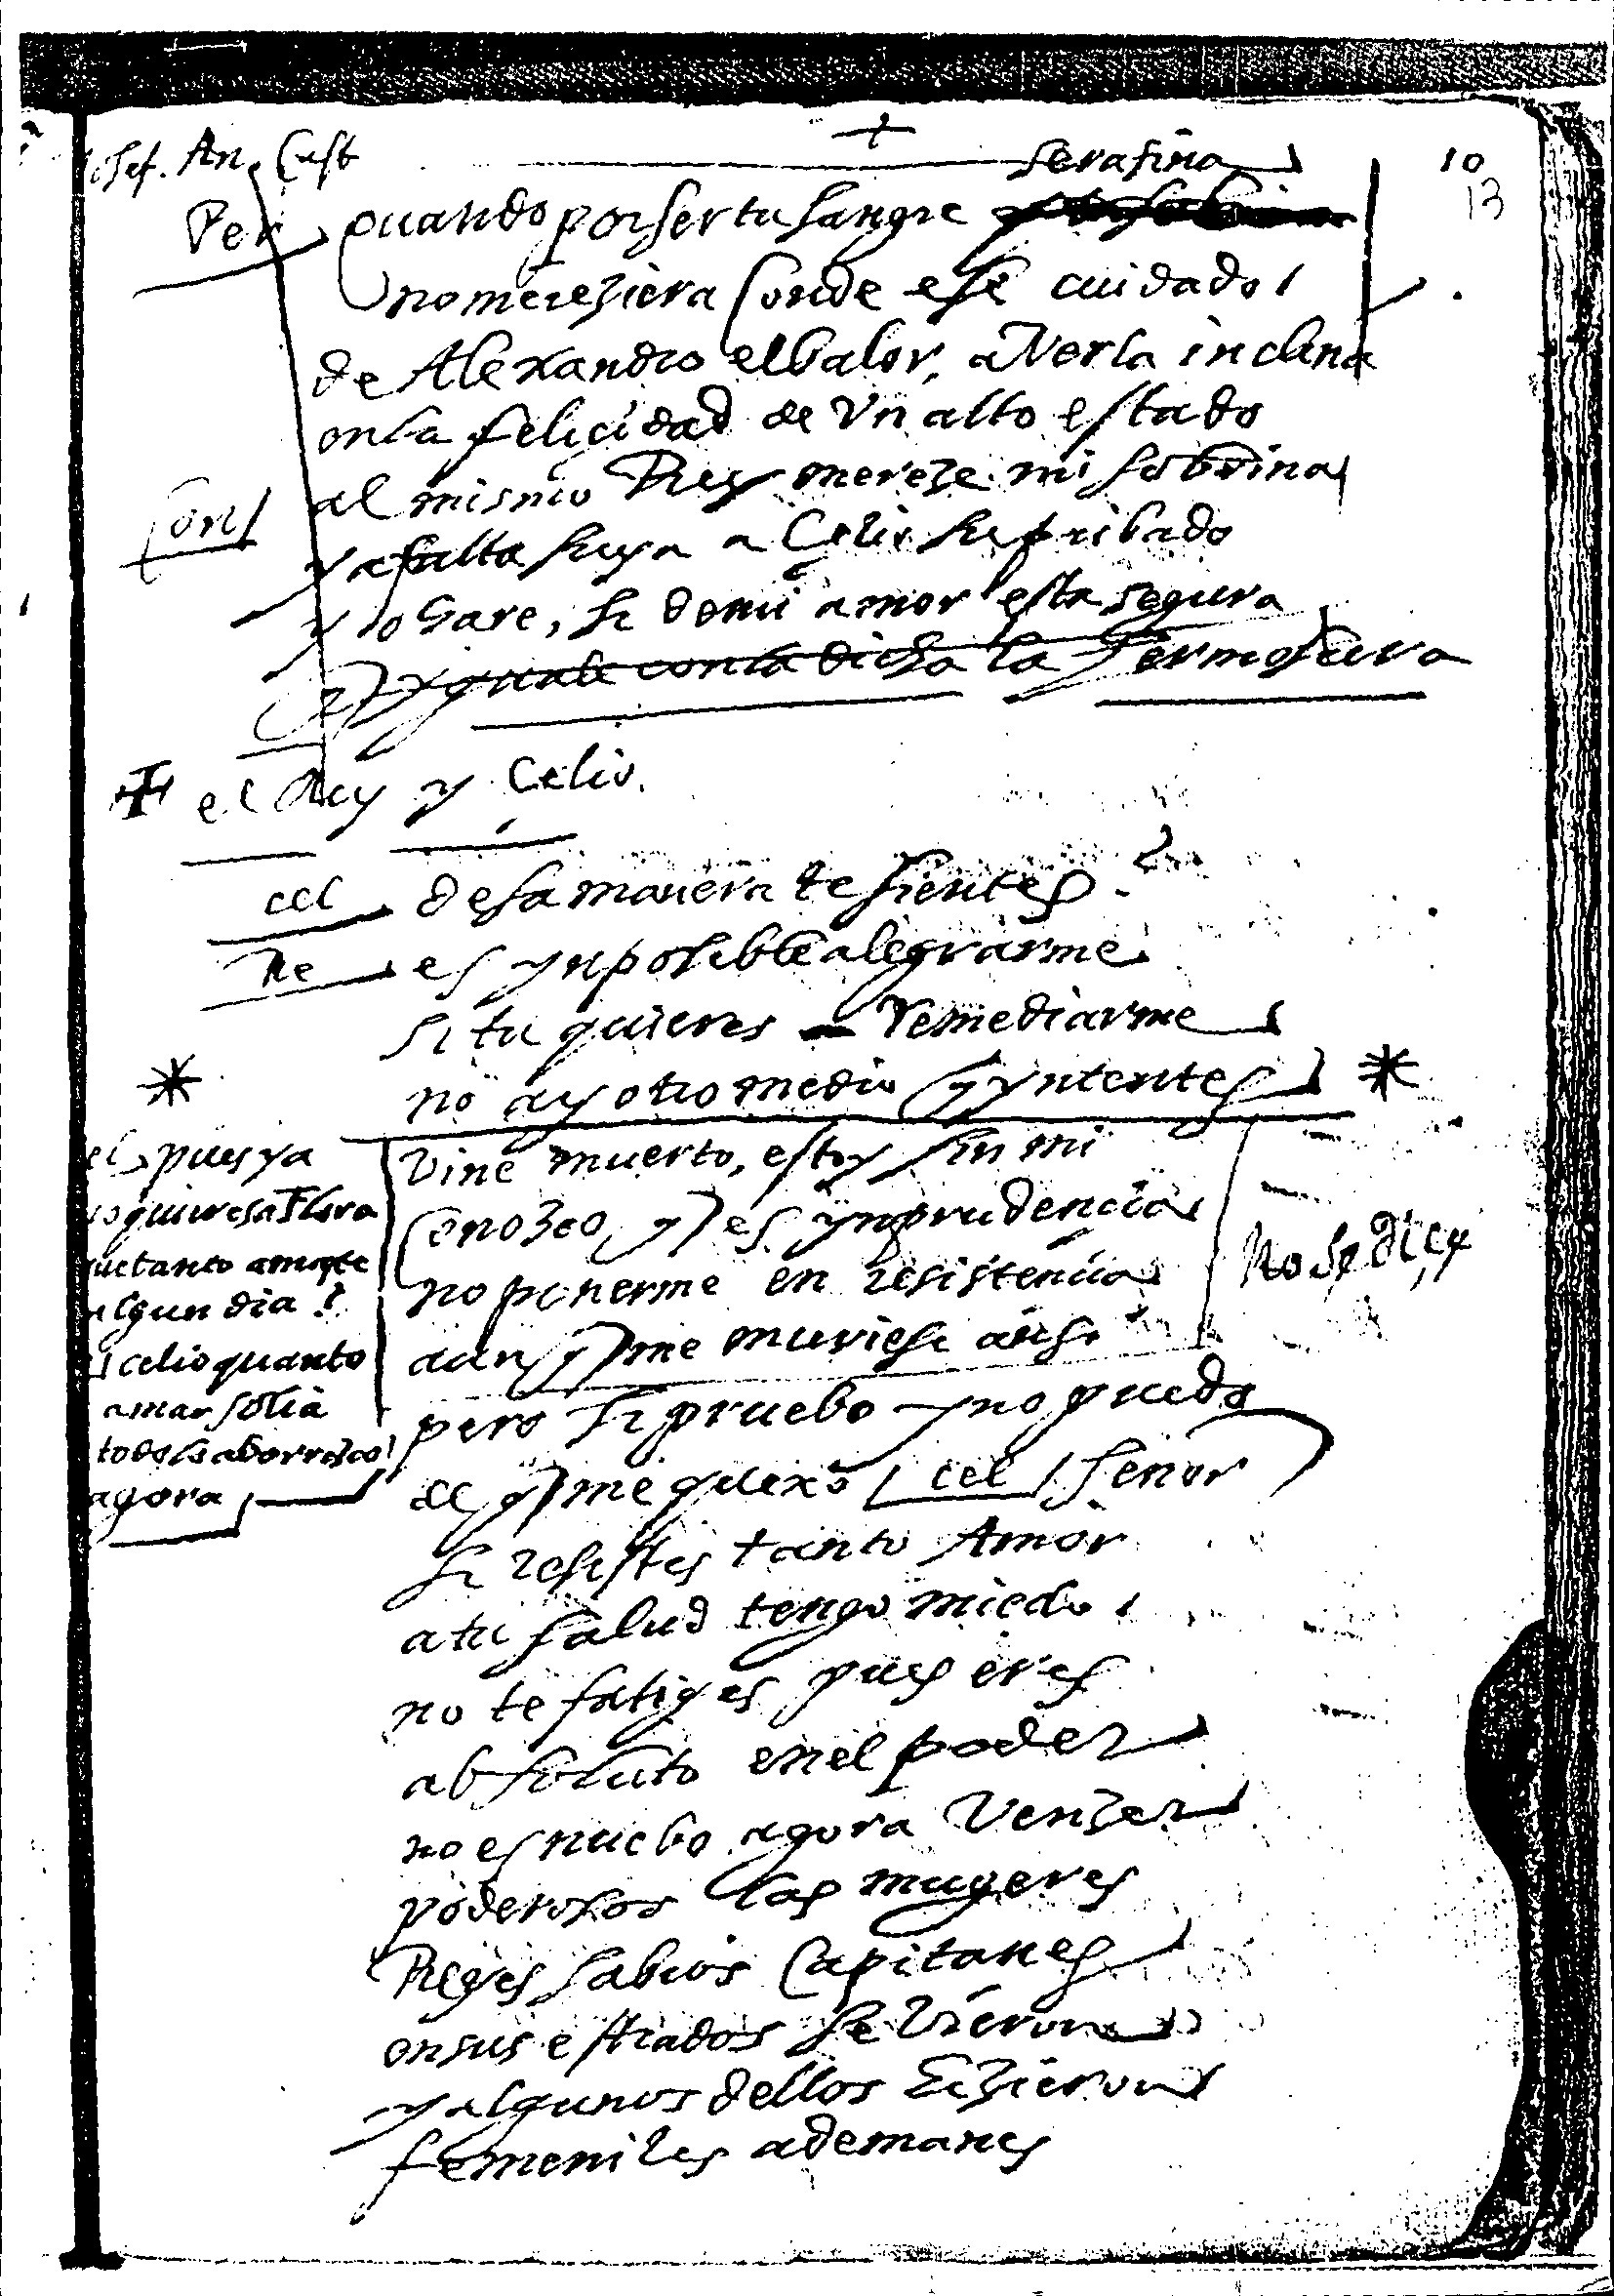 +
Josef. An. Cust
serafina
10
13
Per quando por ser tu sangre
no mereziera Conde ese cuidado
de Alexandro el balor, a Verla inclina
en la felicidad de Vn alto estado
Con al mismo Rey mereze mi sobrina
y a falta suya a Celio su pribado
yo hare, si de mi amor esta segura
q yguale con la dicha la hermosura
el Rey y Celio.
cel desa manera te sientes?
Re es ynposible alegrarme
si tu quieres remediarme
no ay otro medio q yntentes
vine muerto, estoy sin mi
Conozco q es ynprudencia
no ponerme en resistencia
aunq me muriese ansi
No se dize
el pues ya
no quieres a Flora
que tanto amaste
algun dia?
celio quanto
amar solia
todo lo aborrezco
agora
pero si pruebo y no puedo
de q me quexo cel señor
si resistes tanto Amor
a tu salud tengo miedo
no te fatiges pues eres
absoluto en el poder
no es nuebo agora Venzer
poderosos las mugeres
Reyes sabios Capitanes
en sus estrados se vieron
y algunos dellos hizieron
femeniles ademanes